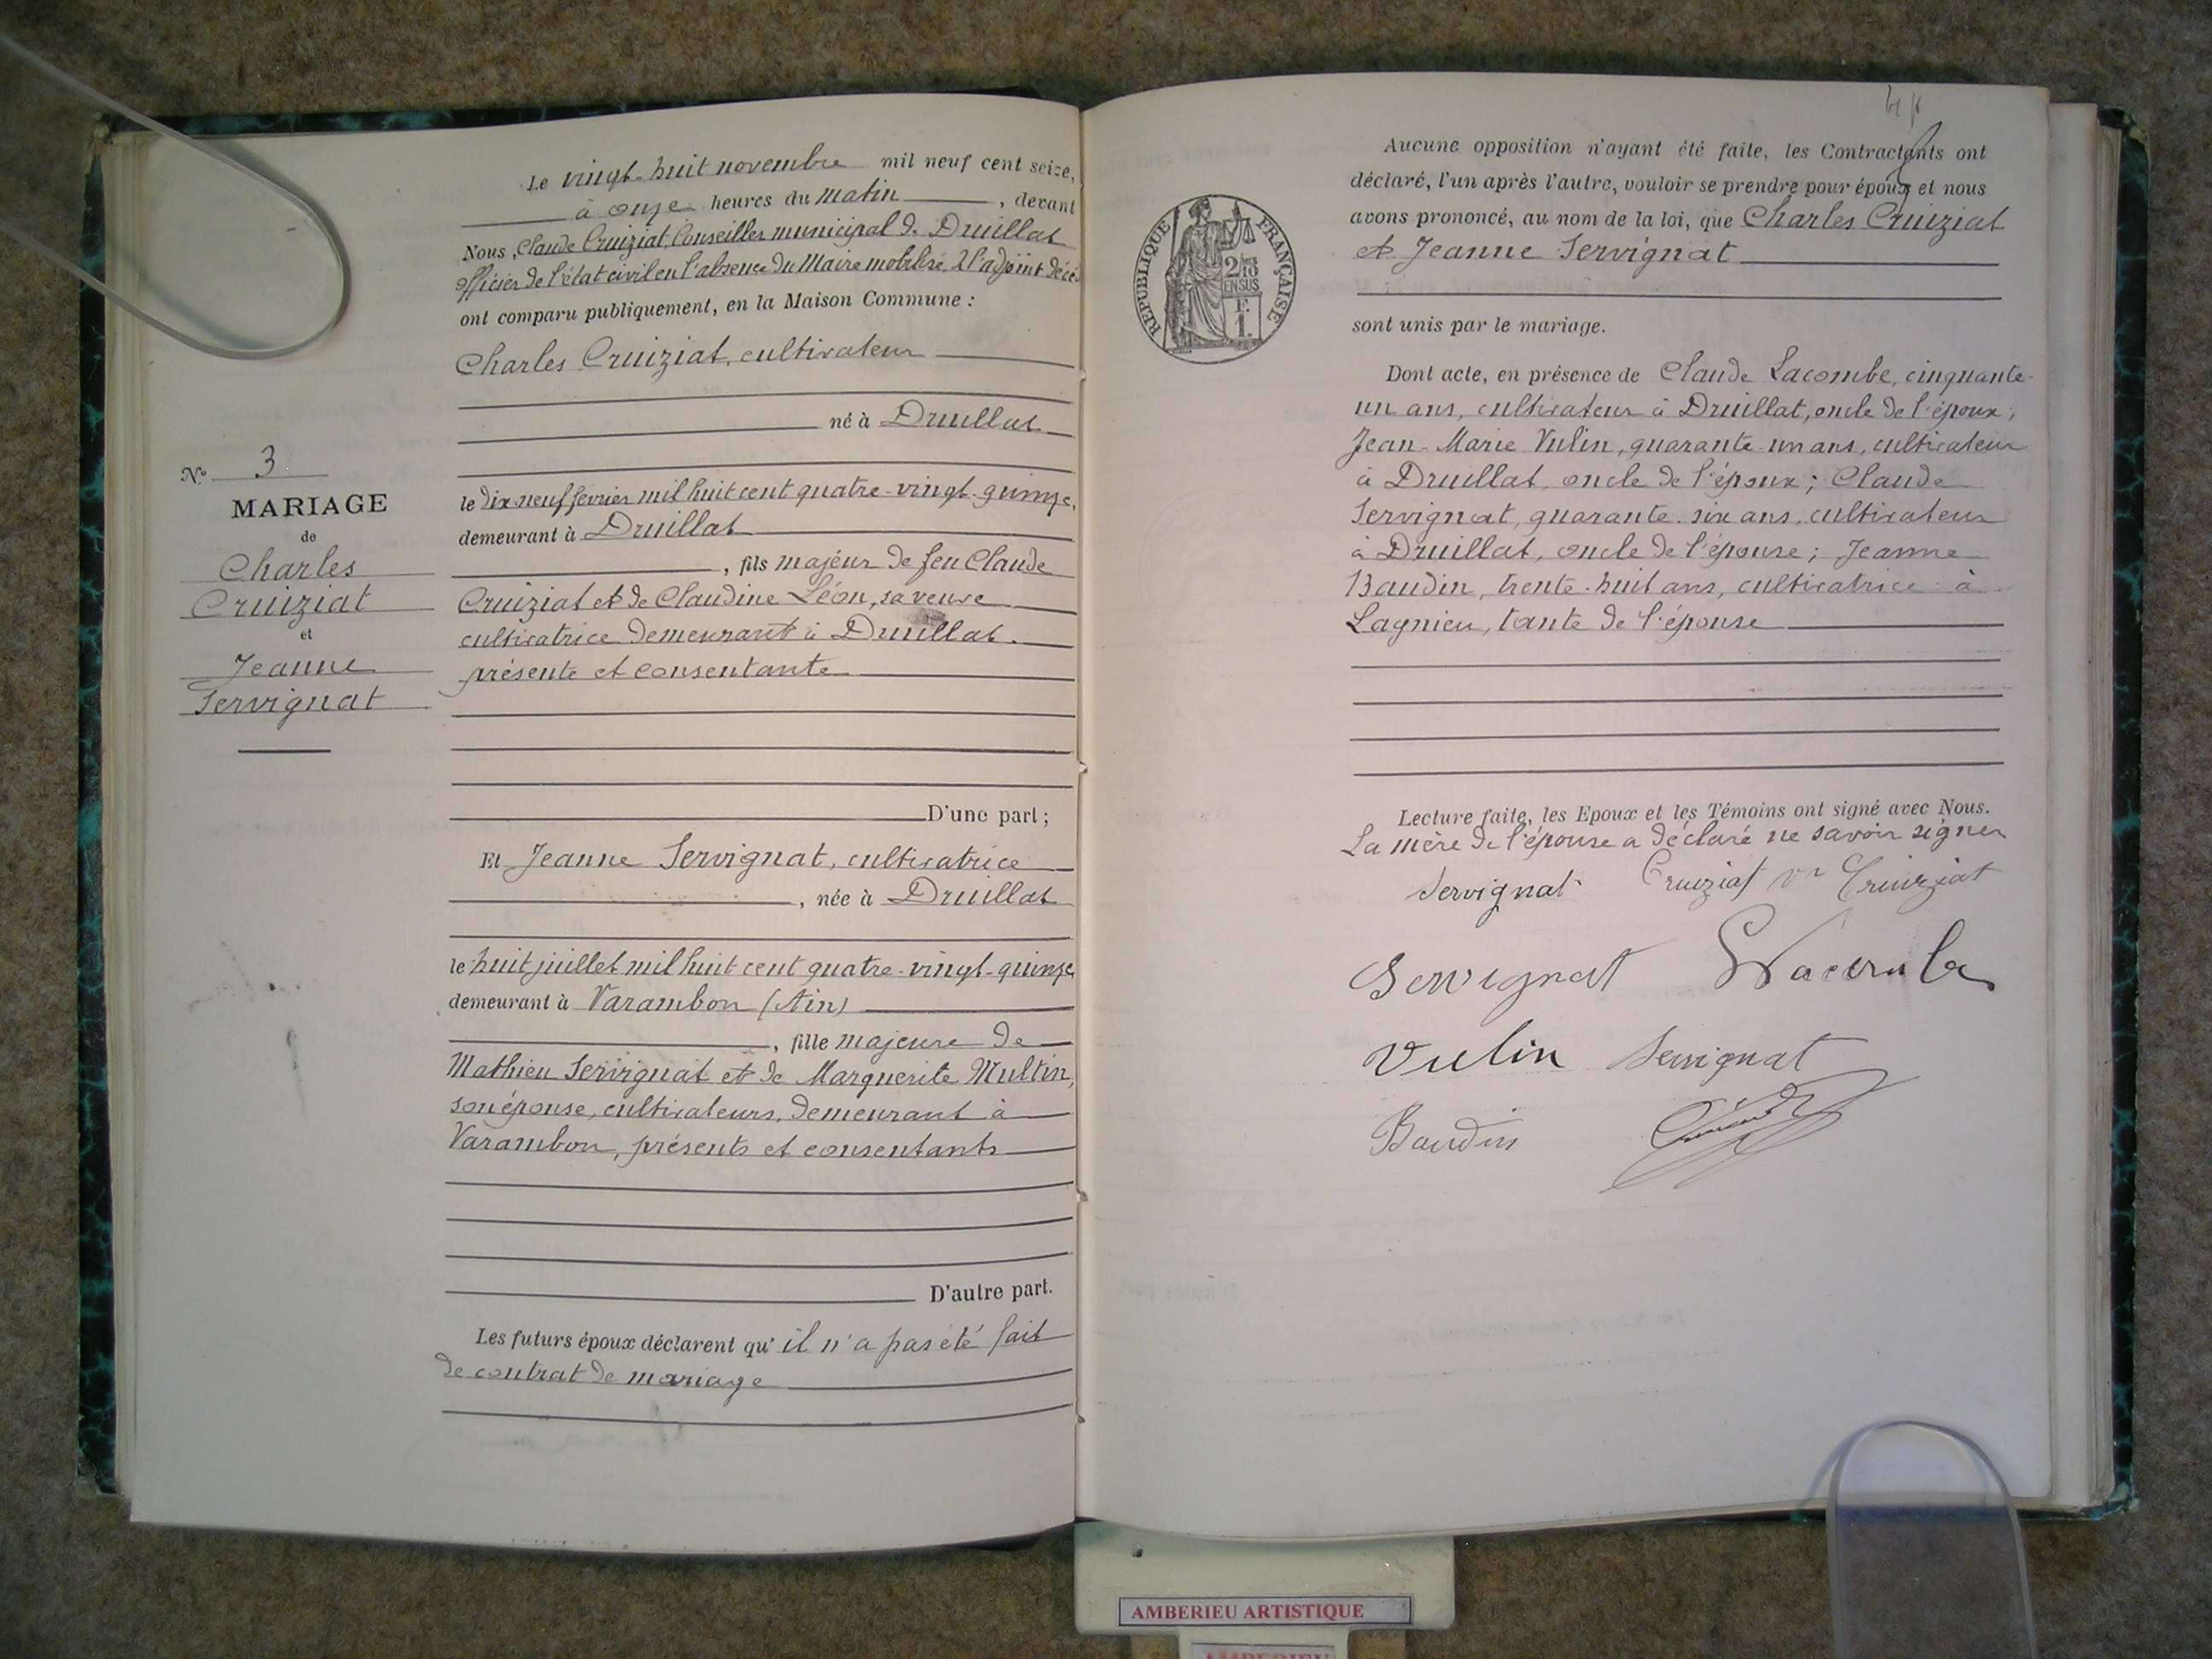 N° 3
MARIAGE
de
Charles
Cruiziat
et
Jeanne
Servignat
Le vingt-huit novembre mil neuf cent seize,
à onze heures du matin, devant
Nous, Claude Cruiziat, Conseiller municipal de Druillat
officier de l'état civil en l'absence du Maire mobilisé, & l'adjoint décé
ont comparu publiquement, en la Maison Commune :
Charles Cruiziat, cultivateur
né à Druillat
le dix-neuf février mil huit cent quatre-vingt-quinze,
demeurant à Druillat
, fils majeur de feu Claude
Cruiziat et de Claudine Léon, sa veuve
cultivatrice demeurant à Druillat.
présente et consentante
D'une part ;
Et Jeanne Servignat, cultivatrice
, née à Druillat
le huit juillet mil huit cent quatre-vingt-quinze,
demeurant à Varambon (Ain)
, fille majeure de
Mathieu Servignat et de Marguerite Multin,
son épouse, cultivateurs, demeurant à
Varambon, présents et consentants
D'autre part.
Les futurs époux déclarent qu'il n'a pas été fait
de contrat de mariage
RÉPUBLIQUE FRANÇAISE
Aucune opposition n'ayant été faite, les Contractants ont
déclaré, l'un après l'autre, vouloir se prendre pour époux et nous
avons prononcé, au nom de la loi, que Charles Cruiziat
et Jeanne Servignat
sont unis par le mariage.
Dont acte, en présence de Claude Lacombe, cinquante-
un ans, cultivateur à Druillat, oncle de l'époux;
Jean-Marie Vulin, quarante-un ans, cultivateur
à Druillat, oncle de l'époux; Claude
Servignat, quarante-six ans, cultivateur
à Druillat, oncle de l'épouse; Jeanne
Baudin, trente-huit ans, cultivatrice à
Lagnieu, tante de l'épouse
Lecture faite, les Epoux et les Témoins ont signé avec Nous.
La mère de l'épouse a déclaré ne savoir signer
Servignat Cruiziat Vve Cruiziat
Servignat Lacombe
Vulin Servignat
Baudin
AMBERIEU ARTISTIQUE
AMBERIEU